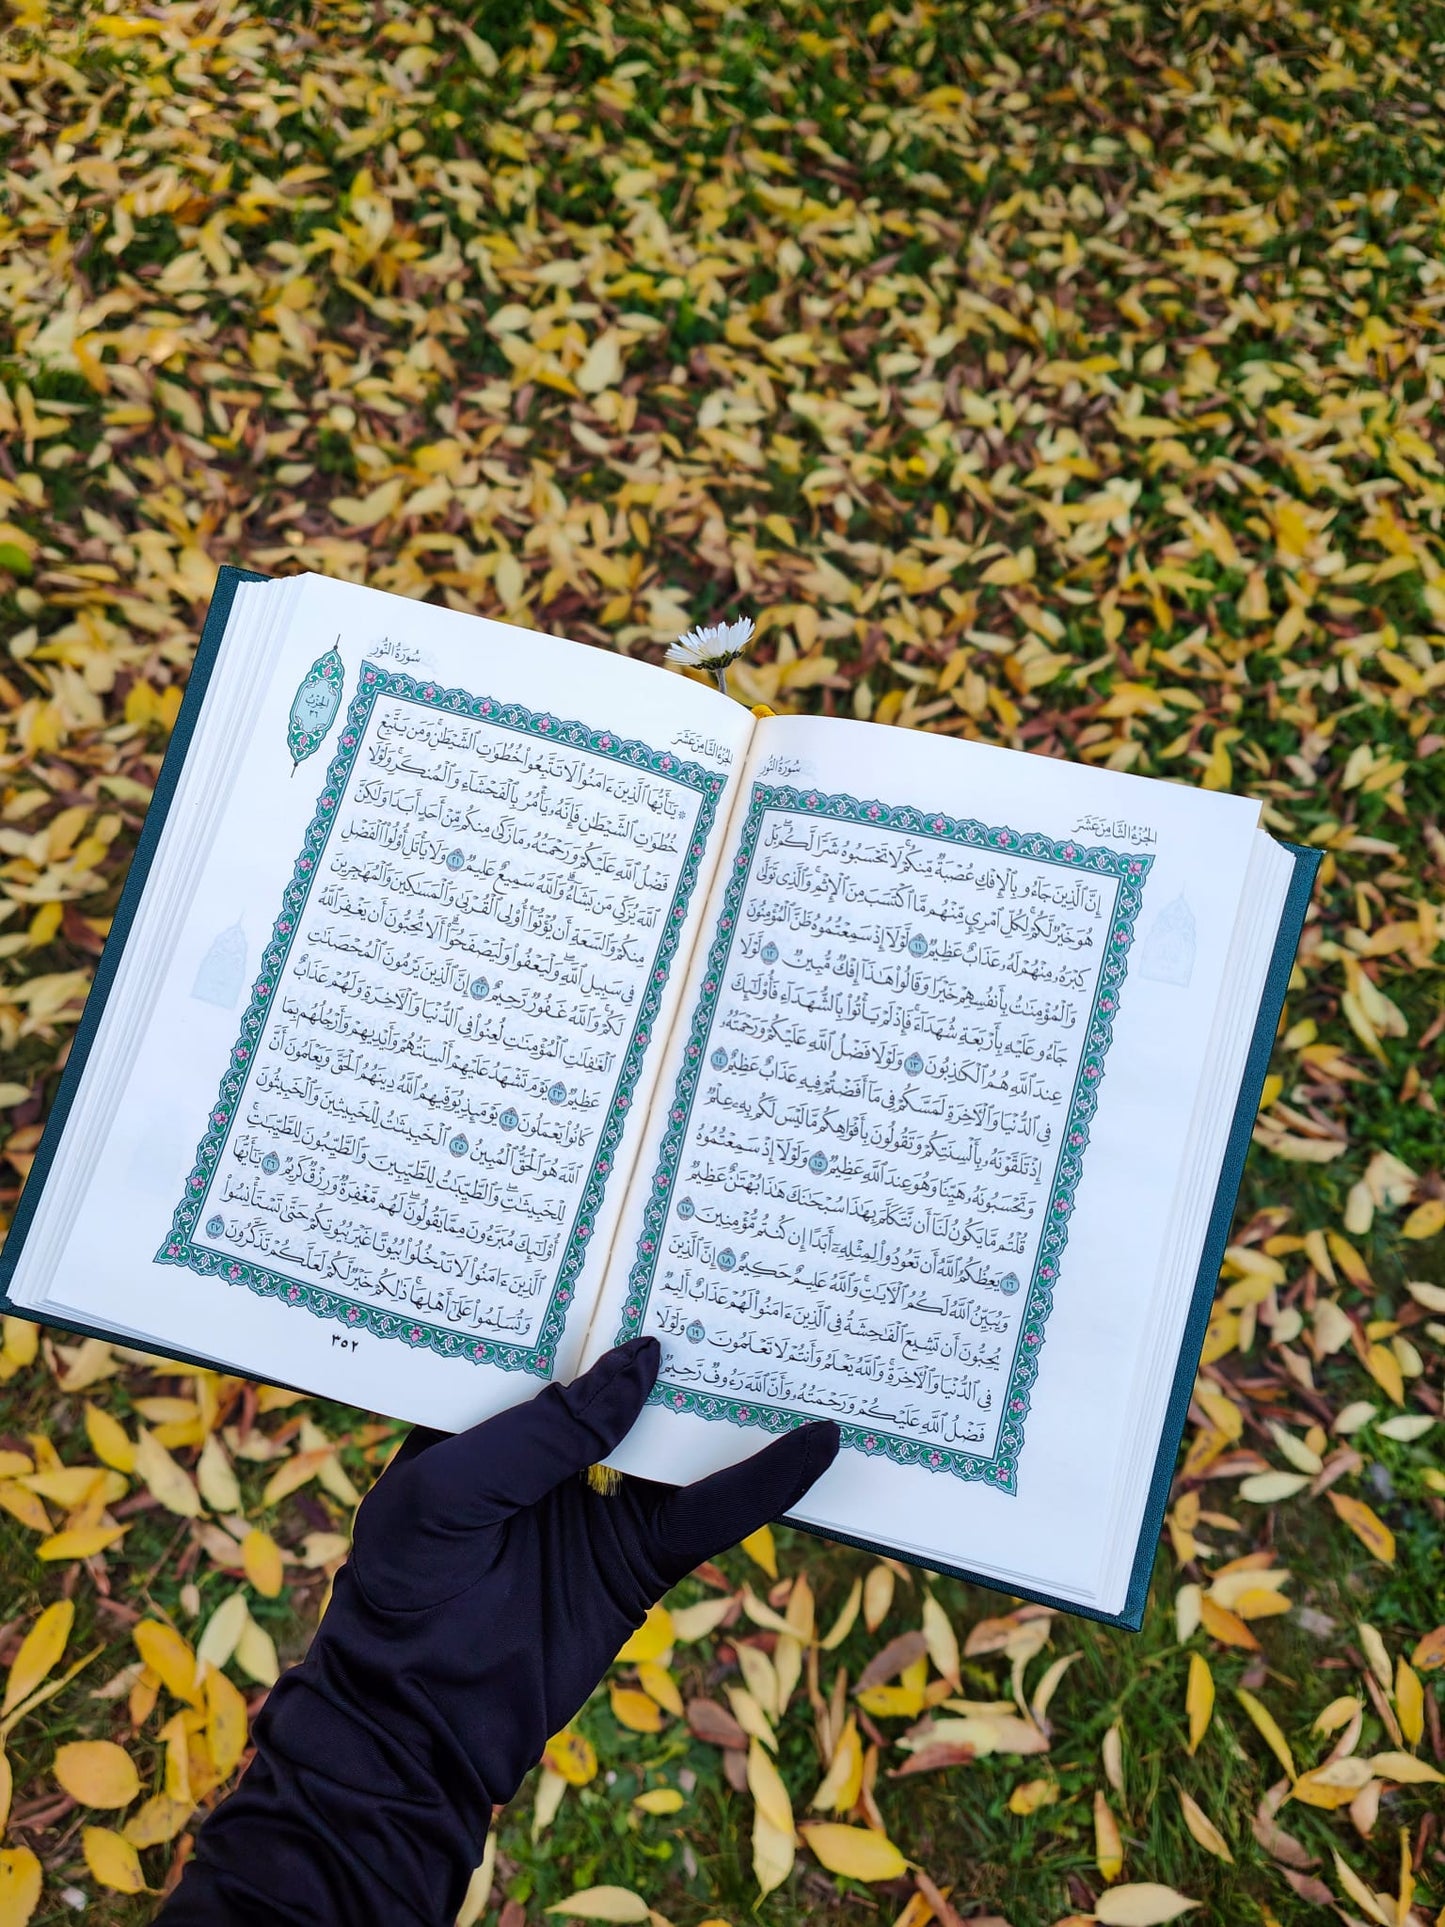 الجُزْءُ الثَّامِنَ عَشَرَ
سُورَةُ النُّورِ
إِنَّ ٱلَّذِينَ جَآءُو بِٱلْإِفْكِ عُصْبَةٌ مِّنكُمْۚ لَا تَحْسَبُوهُ شَرًّا لَّكُمۖ بَلْ
هُوَ خَيْرٌ لَّكُمْۚ لِكُلِّ ٱمْرِئٍ مِّنْهُم مَّا ٱكْتَسَبَ مِنَ ٱلْإِثْمِۚ وَٱلَّذِى تَوَلَّىٰ
كِبْرَهُۥ مِنْهُمْ لَهُۥ عَذَابٌ عَظِيمٌ ١١ لَّوْلَآ إِذْ سَمِعْتُمُوهُ ظَنَّ ٱلْمُؤْمِنُونَ
وَٱلْمُؤْمِنَٰتُ بِأَنفُسِهِمْ خَيْرًا وَقَالُوا۟ هَٰذَآ إِفْكٌ مُّبِينٌ ١٢ لَّوْلَا
جَآءُو عَلَيْهِ بِأَرْبَعَةِ شُهَدَآءَۚ فَإِذْ لَمْ يَأْتُوا۟ بِٱلشُّهَدَآءِ فَأُو۟لَٰٓئِكَ
عِندَ ٱللَّهِ هُمُ ٱلْكَٰذِبُونَ ١٣ وَلَوْلَا فَضْلُ ٱللَّهِ عَلَيْكُمْ وَرَحْمَتُهُۥ
فِى ٱلدُّنْيَا وَٱلْءَاخِرَةِ لَمَسَّكُمْ فِى مَآ أَفَضْتُمْ فِيهِ عَذَابٌ عَظِيمٌ ١٤
إِذْ تَلَقَّوْنَهُۥ بِأَلْسِنَتِكُمْ وَتَقُولُونَ بِأَفْوَاهِكُم مَّا لَيْسَ لَكُم بِهِۦ عِلْمٌ
وَتَحْسَبُونَهُۥ هَيِّنًا وَهُوَ عِندَ ٱللَّهِ عَظِيمٌ ١٥ وَلَوْلَآ إِذْ سَمِعْتُمُوهُ
قُلْتُم مَّا يَكُونُ لَنَآ أَن نَّتَكَلَّمَ بِهَٰذَا سُبْحَٰنَكَ هَٰذَا بُهْتَٰنٌ عَظِيمٌ
١٦ يَعِظُكُمُ ٱللَّهُ أَن تَعُودُوا۟ لِمِثْلِهِۦٓ أَبَدًا إِن كُنتُم مُّؤْمِنِينَ ١٧
وَيُبَيِّنُ ٱللَّهُ لَكُمُ ٱلْءَايَٰتِۚ وَٱللَّهُ عَلِيمٌ حَكِيمٌ ١٨ إِنَّ ٱلَّذِينَ
يُحِبُّونَ أَن تَشِيعَ ٱلْفَٰحِشَةُ فِى ٱلَّذِينَ ءَامَنُوا۟ لَهُمْ عَذَابٌ أَلِيمٌ
فِى ٱلدُّنْيَا وَٱلْءَاخِرَةِۚ وَٱللَّهُ يَعْلَمُ وَأَنتُمْ لَا تَعْلَمُونَ ١٩ وَلَوْلَا
فَضْلُ ٱللَّهِ عَلَيْكُمْ وَرَحْمَتُهُۥ وَأَنَّ ٱللَّهَ رَءُوفٌ رَّحِيمٌ
الجُزْءُ الثَّامِنَ عَشَرَ
سُورَةُ النُّورِ
الحِزْبُ
٣٦
۞ يَٰٓأَيُّهَا ٱلَّذِينَ ءَامَنُوا۟ لَا تَتَّبِعُوا۟ خُطُوَٰتِ ٱلشَّيْطَٰنِۚ وَمَن يَتَّبِعْ
خُطُوَٰتِ ٱلشَّيْطَٰنِ فَإِنَّهُۥ يَأْمُرُ بِٱلْفَحْشَآءِ وَٱلْمُنكَرِۚ وَلَوْلَا
فَضْلُ ٱللَّهِ عَلَيْكُمْ وَرَحْمَتُهُۥ مَا زَكَىٰ مِنكُم مِّنْ أَحَدٍ أَبَدًا وَلَٰكِنَّ
ٱللَّهَ يُزَكِّى مَن يَشَآءُۗ وَٱللَّهُ سَمِيعٌ عَلِيمٌ ٢١ وَلَا يَأْتَلِ أُو۟لُوا۟ ٱلْفَضْلِ
مِنكُمْ وَٱلسَّعَةِ أَن يُؤْتُوٓا۟ أُو۟لِى ٱلْقُرْبَىٰ وَٱلْمَسَٰكِينَ وَٱلْمُهَٰجِرِينَ
فِى سَبِيلِ ٱللَّهِۖ وَلْيَعْفُوا۟ وَلْيَصْفَحُوٓا۟ۗ أَلَا تُحِبُّونَ أَن يَغْفِرَ ٱللَّهُ
لَكُمْۗ وَٱللَّهُ غَفُورٌ رَّحِيمٌ ٢٢ إِنَّ ٱلَّذِينَ يَرْمُونَ ٱلْمُحْصَنَٰتِ
ٱلْغَٰفِلَٰتِ ٱلْمُؤْمِنَٰتِ لُعِنُوا۟ فِى ٱلدُّنْيَا وَٱلْءَاخِرَةِ وَلَهُمْ عَذَابٌ
عَظِيمٌ ٢٣ يَوْمَ تَشْهَدُ عَلَيْهِمْ أَلْسِنَتُهُمْ وَأَيْدِيهِمْ وَأَرْجُلُهُم بِمَا
كَانُوا۟ يَعْمَلُونَ ٢٤ يَوْمَئِذٍ يُوَفِّيهِمُ ٱللَّهُ دِينَهُمُ ٱلْحَقَّ وَيَعْلَمُونَ أَنَّ
ٱللَّهَ هُوَ ٱلْحَقُّ ٱلْمُبِينُ ٢٥ ٱلْخَبِيثَٰتُ لِلْخَبِيثِينَ وَٱلْخَبِيثُونَ
لِلْخَبِيثَٰتِۖ وَٱلطَّيِّبَٰتُ لِلطَّيِّبِينَ وَٱلطَّيِّبُونَ لِلطَّيِّبَٰتِۚ
أُو۟لَٰٓئِكَ مُبَرَّءُونَ مِمَّا يَقُولُونَۖ لَهُم مَّغْفِرَةٌ وَرِزْقٌ كَرِيمٌ ٢٦ يَٰٓأَيُّهَا
ٱلَّذِينَ ءَامَنُوا۟ لَا تَدْخُلُوا۟ بُيُوتًا غَيْرَ بُيُوتِكُمْ حَتَّىٰ تَسْتَأْنِسُوا۟
وَتُسَلِّمُوا۟ عَلَىٰٓ أَهْلِهَاۚ ذَٰلِكُمْ خَيْرٌ لَّكُمْ لَعَلَّكُمْ تَذَكَّرُونَ ٢٧
٣٥٢